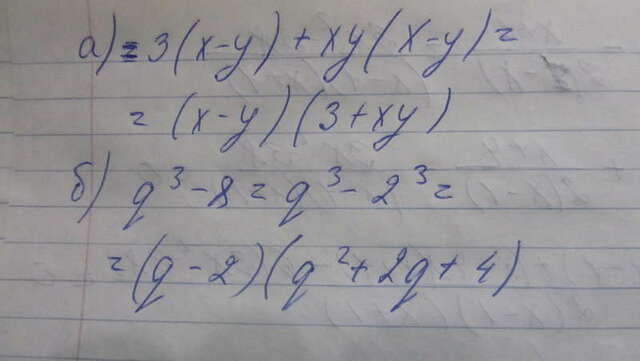 а) = 3(x-y) + xy(x-y) =
= (x-y)(3+xy)
б) q³ - 8 = q³ - 2³ =
= (q - 2)(q² + 2q + 4)